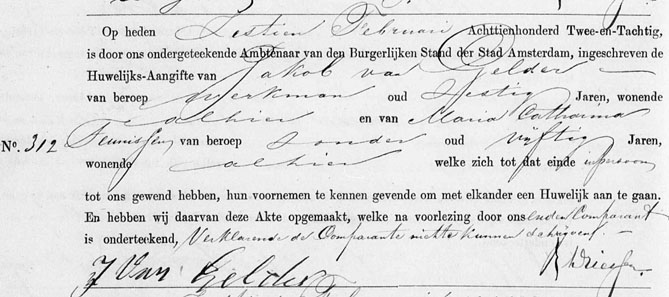 Op heden Zestien Februari Achttienhonderd Twee-en-Tachtig,
is door ons ondergeteekende Ambtenaar van den Burgerlijken Stand der Stad Amsterdam, ingeschreven de
Huwelijks-Aangifte van Jakob van Gelder
van beroep Werkman oud Zestig Jaren, wonende
alhier en van Maria Catharina
No. 312 Teunissen van beroep zonder oud vijftig Jaren,
wonende alhier welke zich tot dat einde in persoon
tot ons gewend hebben, hun voornemen te kennen gevende om met elkander een Huwelijk aan te gaan.
En hebben wij daarvan deze Akte opgemaakt, welke na voorlezing door ons en den Comparant
is onderteekend, Verklarende de Comparante niet te kunnen schrijven
J Van Gelder